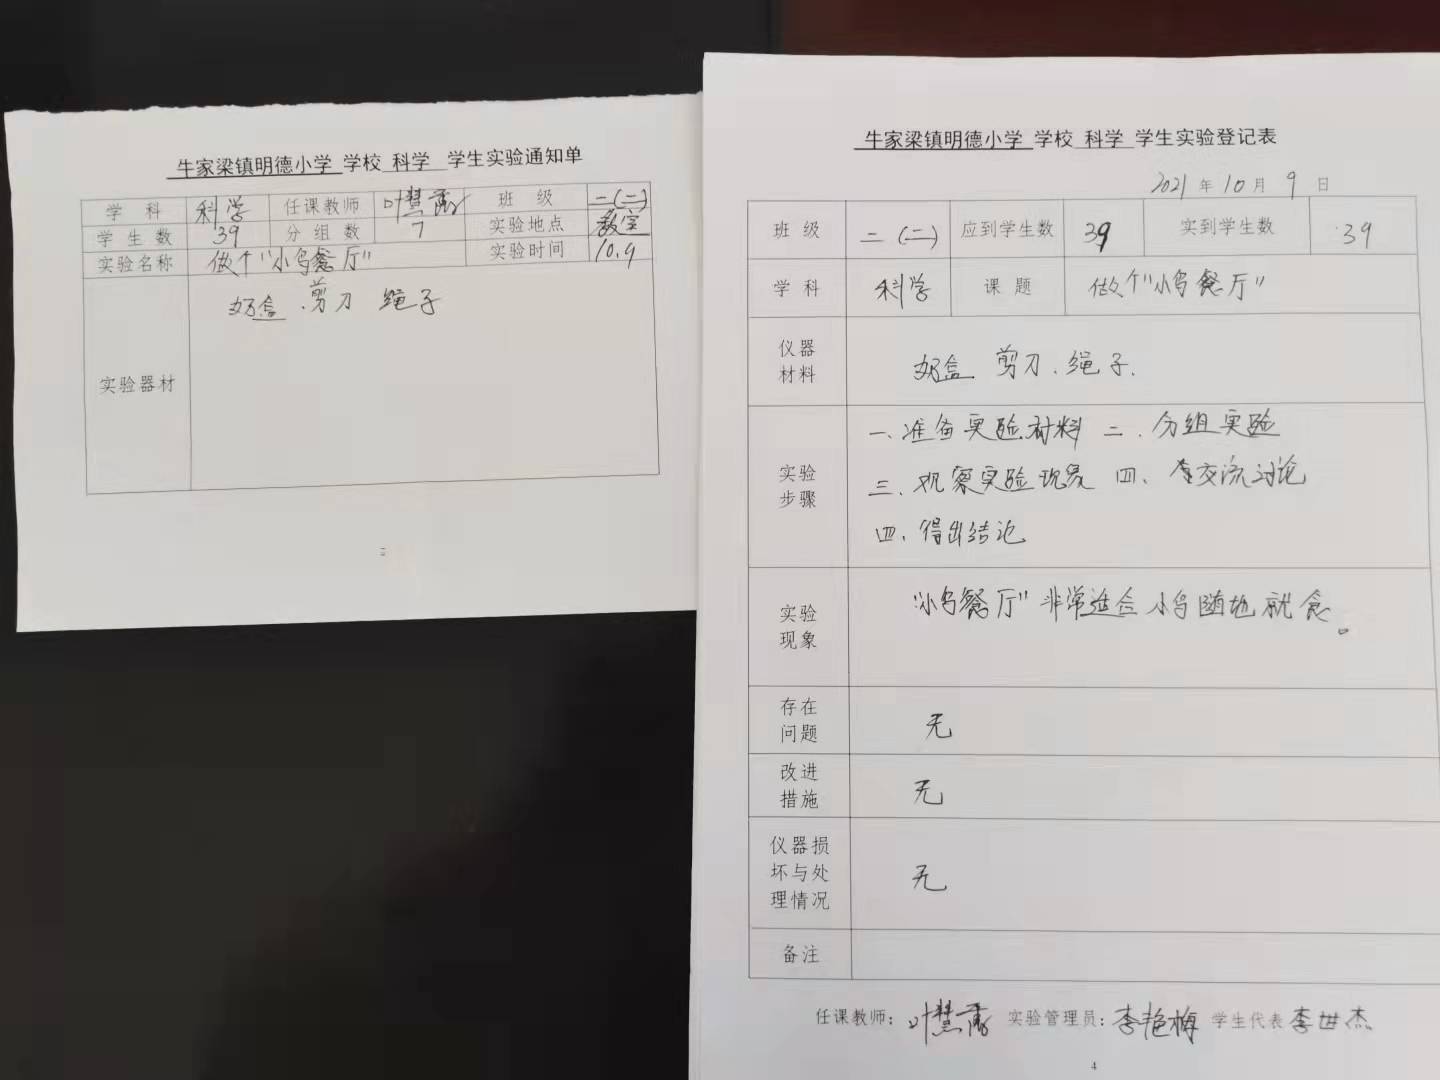 牛家梁镇明德小学 学校 科学 学生实验通知单
学 科 科学 任课教师 叶慧 班 级 二(二)
学 生 数 39 分 组 数 7 实验地点 教室
实验名称 做个“小鸟餐厅” 实验时间 10.9
实验器材 奶盒 .剪刀 绳子
二
牛家梁镇明德小学 学校 科学 学生实验登记表
2021 年 10 月 9 日
班 级 二(二) 应到学生数 39 实到学生数 39
学 科 科学 课 题 做个“小鸟餐厅”
仪器
材料
奶盒 剪刀.绳子.
实验
步骤
一、准备实验材料 二、分组实验
三、观察实验现象 四、交流讨论
四、得出结论
实验
现象
“小鸟餐厅”非常适合小鸟随地就食。
存在
问题
无
改进
措施
无
仪器损
坏与处
理情况
无
备注
任课教师: 叶慧 实验管理员: 李艳梅 学生代表 李世杰
4